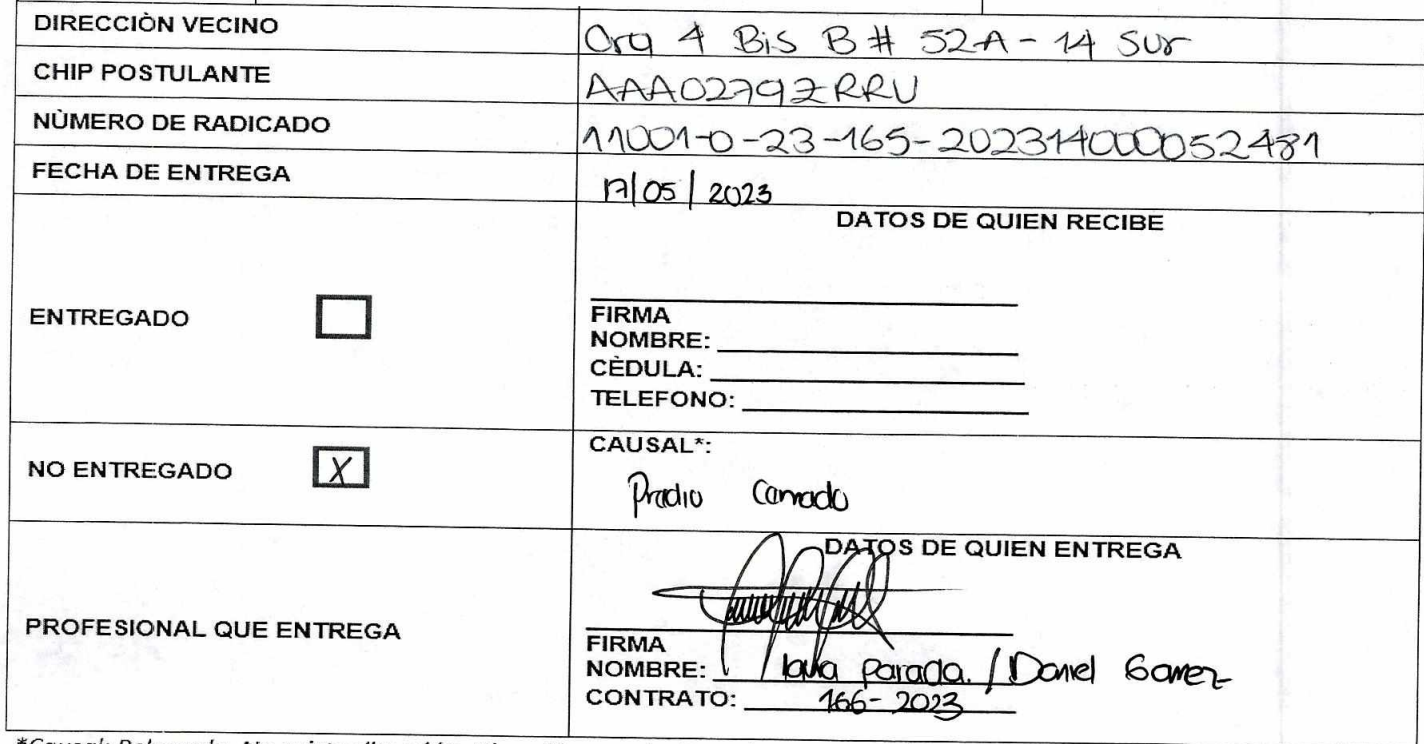 DIRECCIÒN VECINO
Cra 4 Bis B # 52A - 14 Sur
CHIP POSTULANTE
AAA0279ZRRU
NÙMERO DE RADICADO
11001-0-23-165-202314000052481
FECHA DE ENTREGA
17/05/2023
DATOS DE QUIEN RECIBE
ENTREGADO
FIRMA
NOMBRE:
CÈDULA:
TELEFONO:
NO ENTREGADO X
CAUSAL*:
Predio Cerrado
DATOS DE QUIEN ENTREGA
PROFESIONAL QUE ENTREGA
FIRMA
NOMBRE: Parada. / Daniel Gamez
CONTRATO: 166-2023